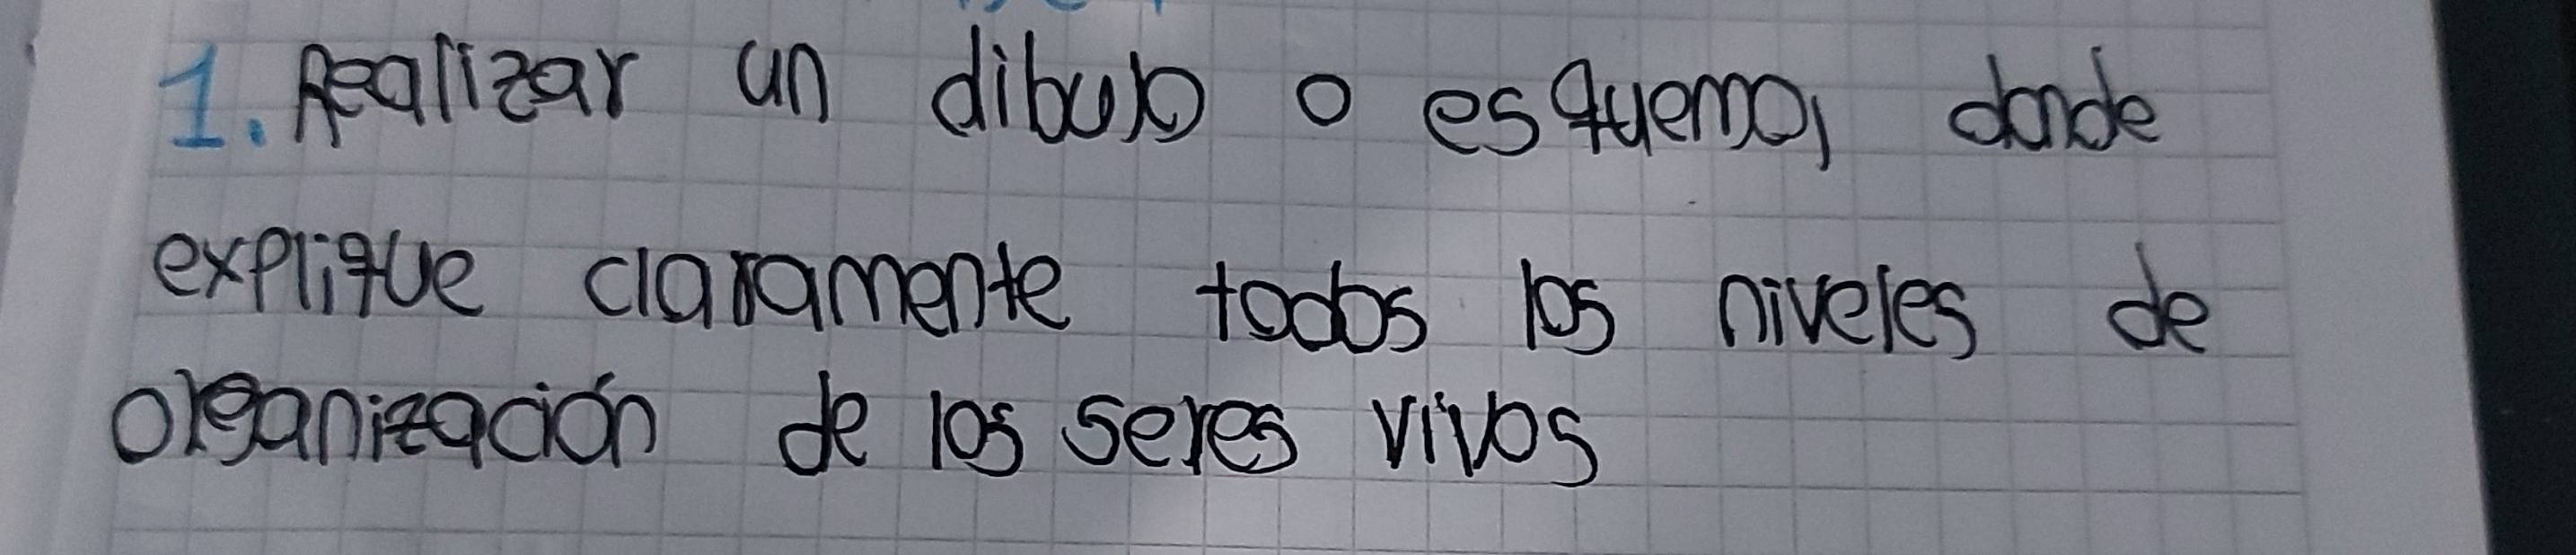 1. Realizar un dibujo o esquema, donde
explique claramente todos los niveles de
organización de los seres vivos